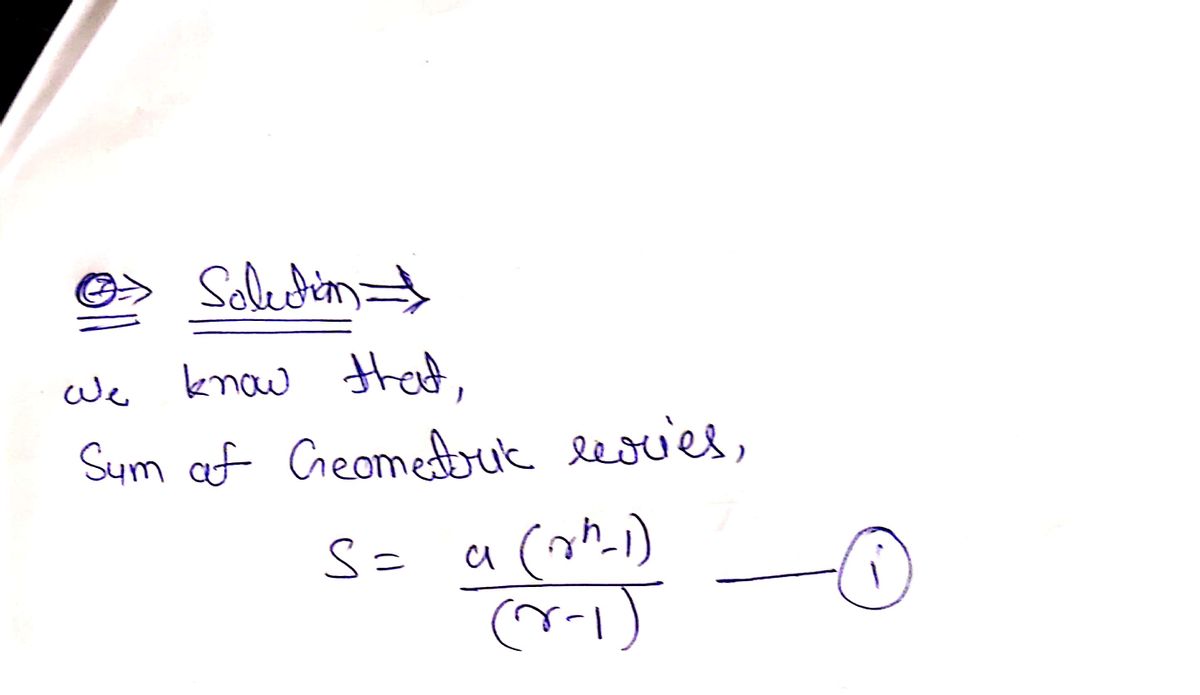 ⇒ Solution ⇒
We know that,
Sum of Geometric series,
S = a (r^n - 1) / (r - 1) —— (i)